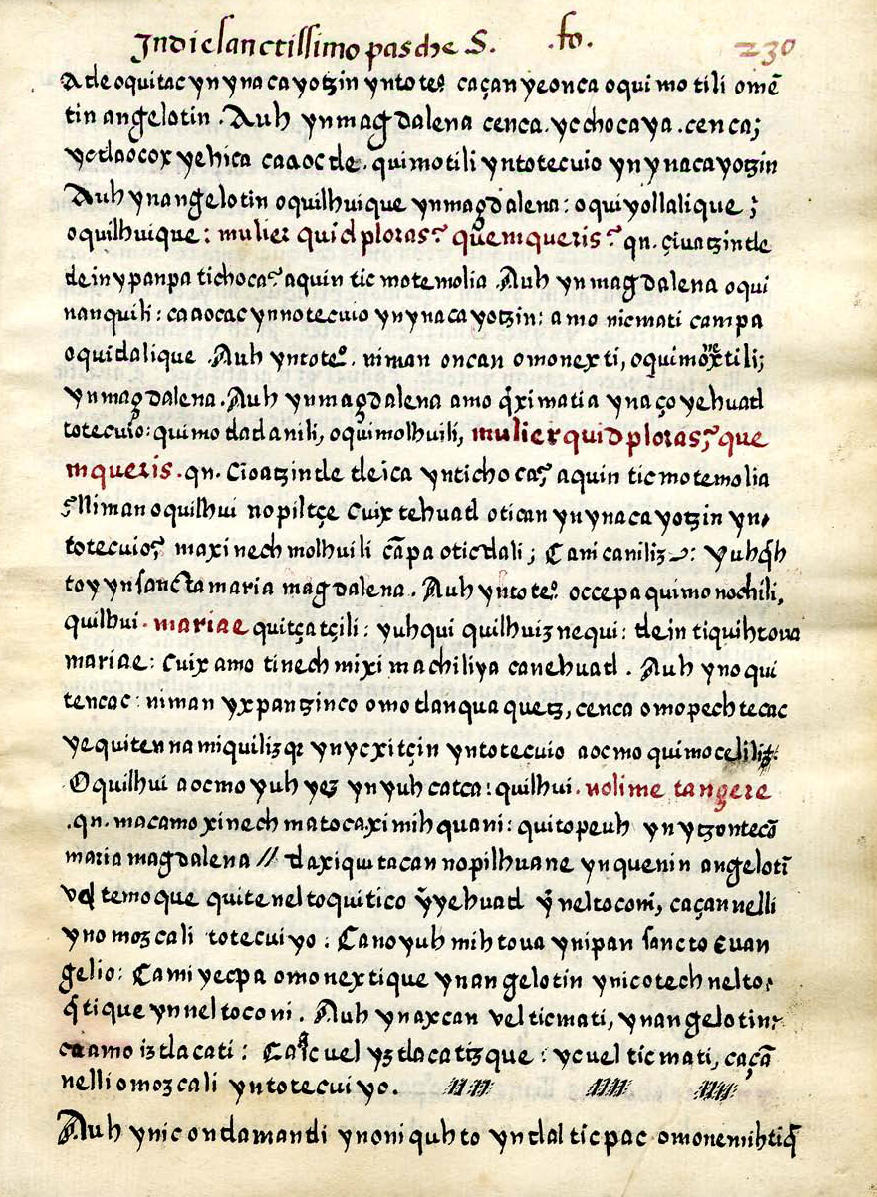 Jndie sanctissimo pasche S. .fo. 230
Atle oquitac yn ynacayotzin yntoteo caçan yeonca oquimotili omē
tin angelotin. Auh ynmagdalena cenca. ychocaya. cenca;
yetlaocox yehica caaoctle. quimotili yntotecuio ynynacayotzin
Auh ynangelotin oquilhuique ynmagdalena: oquiyollalique;
oquilhuique: mulier quid ploras? quem queris? qn. çiuatzintle
tleinypanpa tichoca? aquin tic motemolia. Auh ynmagdalena oqui
nanquili: caaocac ynnotecuio ynynacayotzin: amo nicmati campa
oquitlalique. Auh yntoteo. niman oncan omonexti, oquimoxtili;
ynmagdalena. Auh ynmagdalena amo q̄ximatia ynaço yehuatl
totecuio: quimotlatlanili, oquimolhuili, mulier quid ploras? que
mqueris. qn. Cioatzintle tleica yntichoca? aquin ticmotemolia
Niman oquilhui nopiltçe Cuix tehuatl otican ynynacayotzin yn
totecuio? maxinechmolhuili cāpa otictlali; Canicaniliz: Yuhq̄h
toy ynsancta maria magdalena. Auh yntoteo. occepa quimonochili,
quilhui. mariae quitçatçili: yuhqui quilhuiznequi: tlein tiquihtoua
mariae: Cuix amo tinechmiximachiliya canehuatl. Auh ynoqui
tencac: niman yxpantzinco omotlanquaquetz, cenca omopechtecac
yequitennamiquilizqr ynycxitçin yntotecuio aocmo quimoceliliz:
Oquilhui aocmo yuh yez ynyuh catca: quilhui. noli me tangere
.qn. macamo xinechmatoca ximihquani: quitopeuh ynytzontecō
maria magdalena // tlaxiquitacan nopilhuane ynquenin angelotī
vel temoque quiteneltoquitico ȳyehuatl ȳ neltoconi, caçannelli
ynomozcali totecuiyo: Canoyuh mihtoua ynipan sancto Euan
gelio: Camiyecpa omonextique ynangelotin ynicotech nelto
q̄tique ynneltoconi. Auh ynaxcan velticmati, ynangelotin
caamo iztlacati: Ca uel yztlacatizque: ycuel ticmati, caçā
nelli omozcali yntotecuiyo.
Auh ynicontlamantli ynoniquhto yntlalticpac omonemihtiq̄